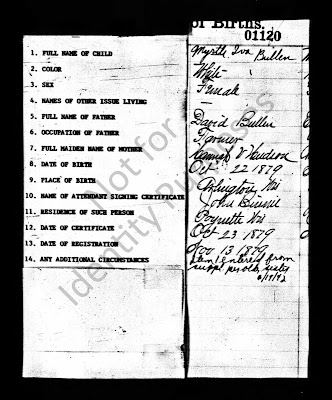 of Births.
01120
1. FULL NAME OF CHILD Myrtle Iva Bullen
2. COLOR White
3. SEX Female
4. NAMES OF OTHER ISSUE LIVING —
5. FULL NAME OF FATHER David Bullen
6. OCCUPATION OF FATHER Farmer
7. FULL MAIDEN NAME OF MOTHER
8. DATE OF BIRTH Oct 22 1879
9. PLACE OF BIRTH Arlington, Wis
10. NAME OF ATTENDANT SIGNING CERTIFICATE John Binnie
11. RESIDENCE OF SUCH PERSON Poynette Wis
12. DATE OF CERTIFICATE Oct 23 1879
13. DATE OF REGISTRATION Nov 13 1879
14. ANY ADDITIONAL CIRCUMSTANCES Item 1 entered from
Not for Identity Purposes